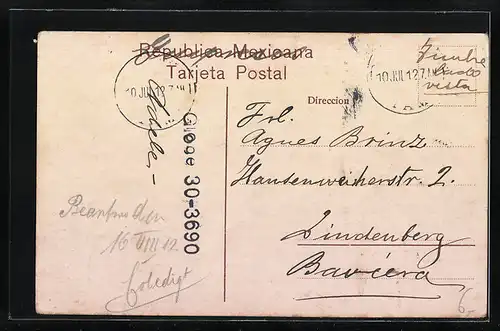 Republica Mexicana
Tarjeta Postal
10 JUL 12 7
10 JUL 12 7
Timbre
lado
vista
Direccion
Frl.
Agnes Brinz
Hansenweiherstr. 2.
Lindenberg
Baviera
Gloge 30-3690
16 VIII 12
Erledigt
6,-